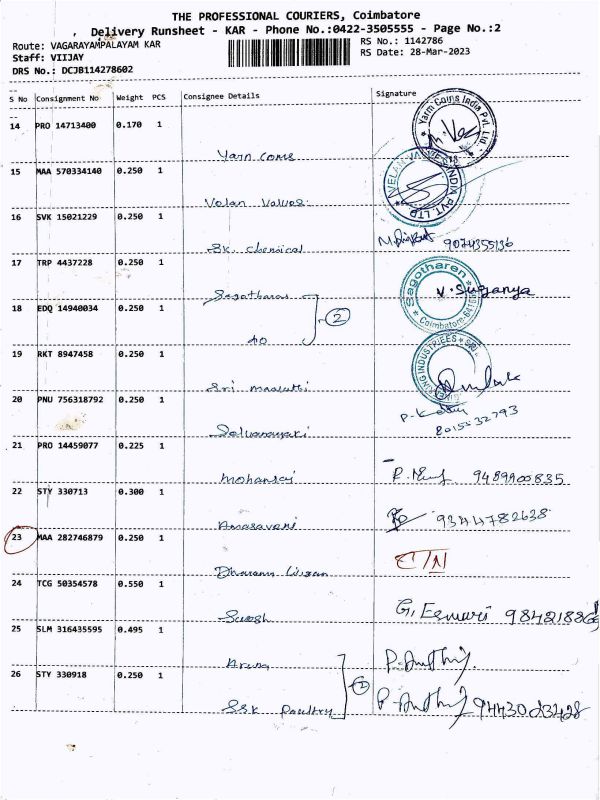 THE PROFESSIONAL COURIERS, Coimbatore
, Delivery Runsheet - KAR - Phone No.:0422-3505555 - Page No.:2
Route: VAGARAYAMPALAYAM KAR RS No.: 1142786
Staff: VIIJAY RS Date: 28-Mar-2023
DRS No.: DCJB114278602
S No Consignment No Weight PCS Consignee Details Signature
14 PRO 14713400 0.170 1
Yarn Coms Yarm Coms India Pvt. Ltd
15 MAA 570334140 0.250 1
Velan Valves VELAN VALVES INDIA PVT LTD
16 SVK 15021229 0.250 1
SK. Chemical 9074355136
17 TRP 4437228 0.250 1
Sagotharan Sagotharen V. Suganya
18 EDQ 14940034 0.250 1 2 Coimbatore-641
do
19 RKT 8947458 0.250 1
Sri Maruthi INDUSTRIEES SRI
20 PNU 756318792 0.250 1
Selvanayaki 8015232793
21 PRO 14459077 0.225 1
Mohanraj 9489900835
22 STY 330713 0.300 1
Amaravani 9344782638
23 MAA 282746879 0.250 1
Dharani C/N
24 TCG 50354578 0.550 1
Suresh G. Eswari 98421886
25 SLM 316435595 0.495 1
Aruna
26 STY 330918 0.250 1 2
SSK Poultry 9443023428